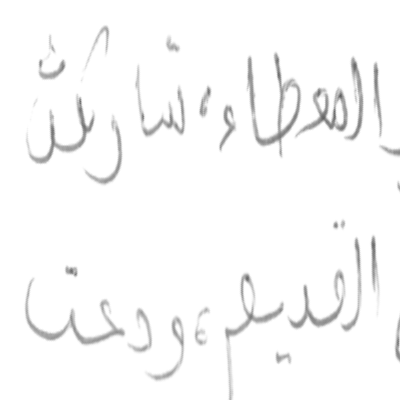 المعطاء، شاركتُ
القديم، ودعت